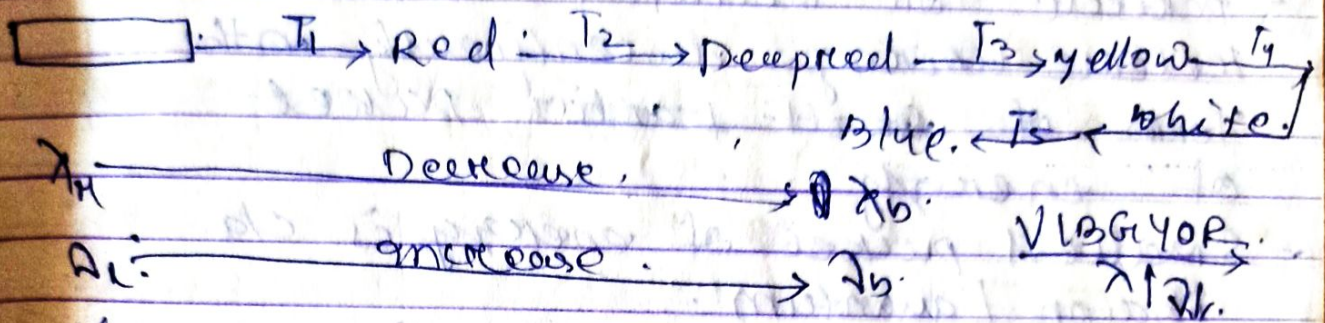 T1 → Red. T2 → Deepred T3 → yellow T4
Blue. ← T5 ← white.
λr Decrease. → λb.
νr. increase. → νb. VIBGYOR.
λ↑ν↓.